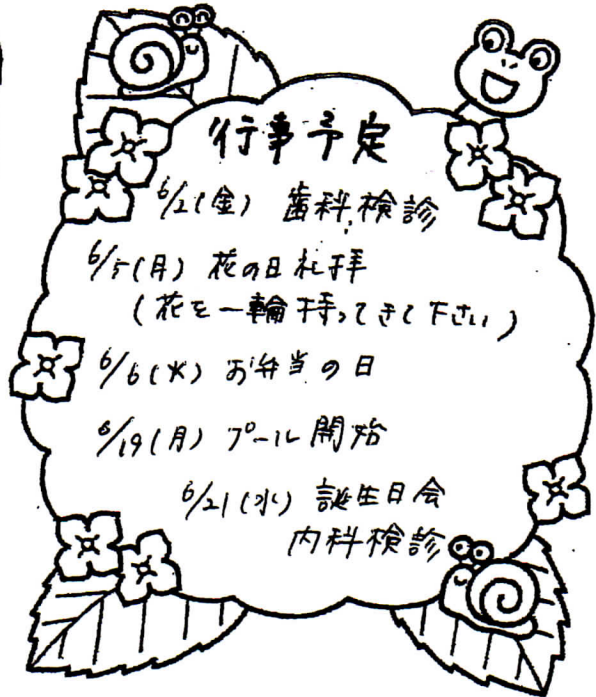 行事予定
6/2(金) 歯科検診
6/5(月) 花の日礼拝
(花を一輪持ってきて下さい)
6/6(火) お弁当の日
6/19(月) プール開始
6/21(水) 誕生日会
内科検診